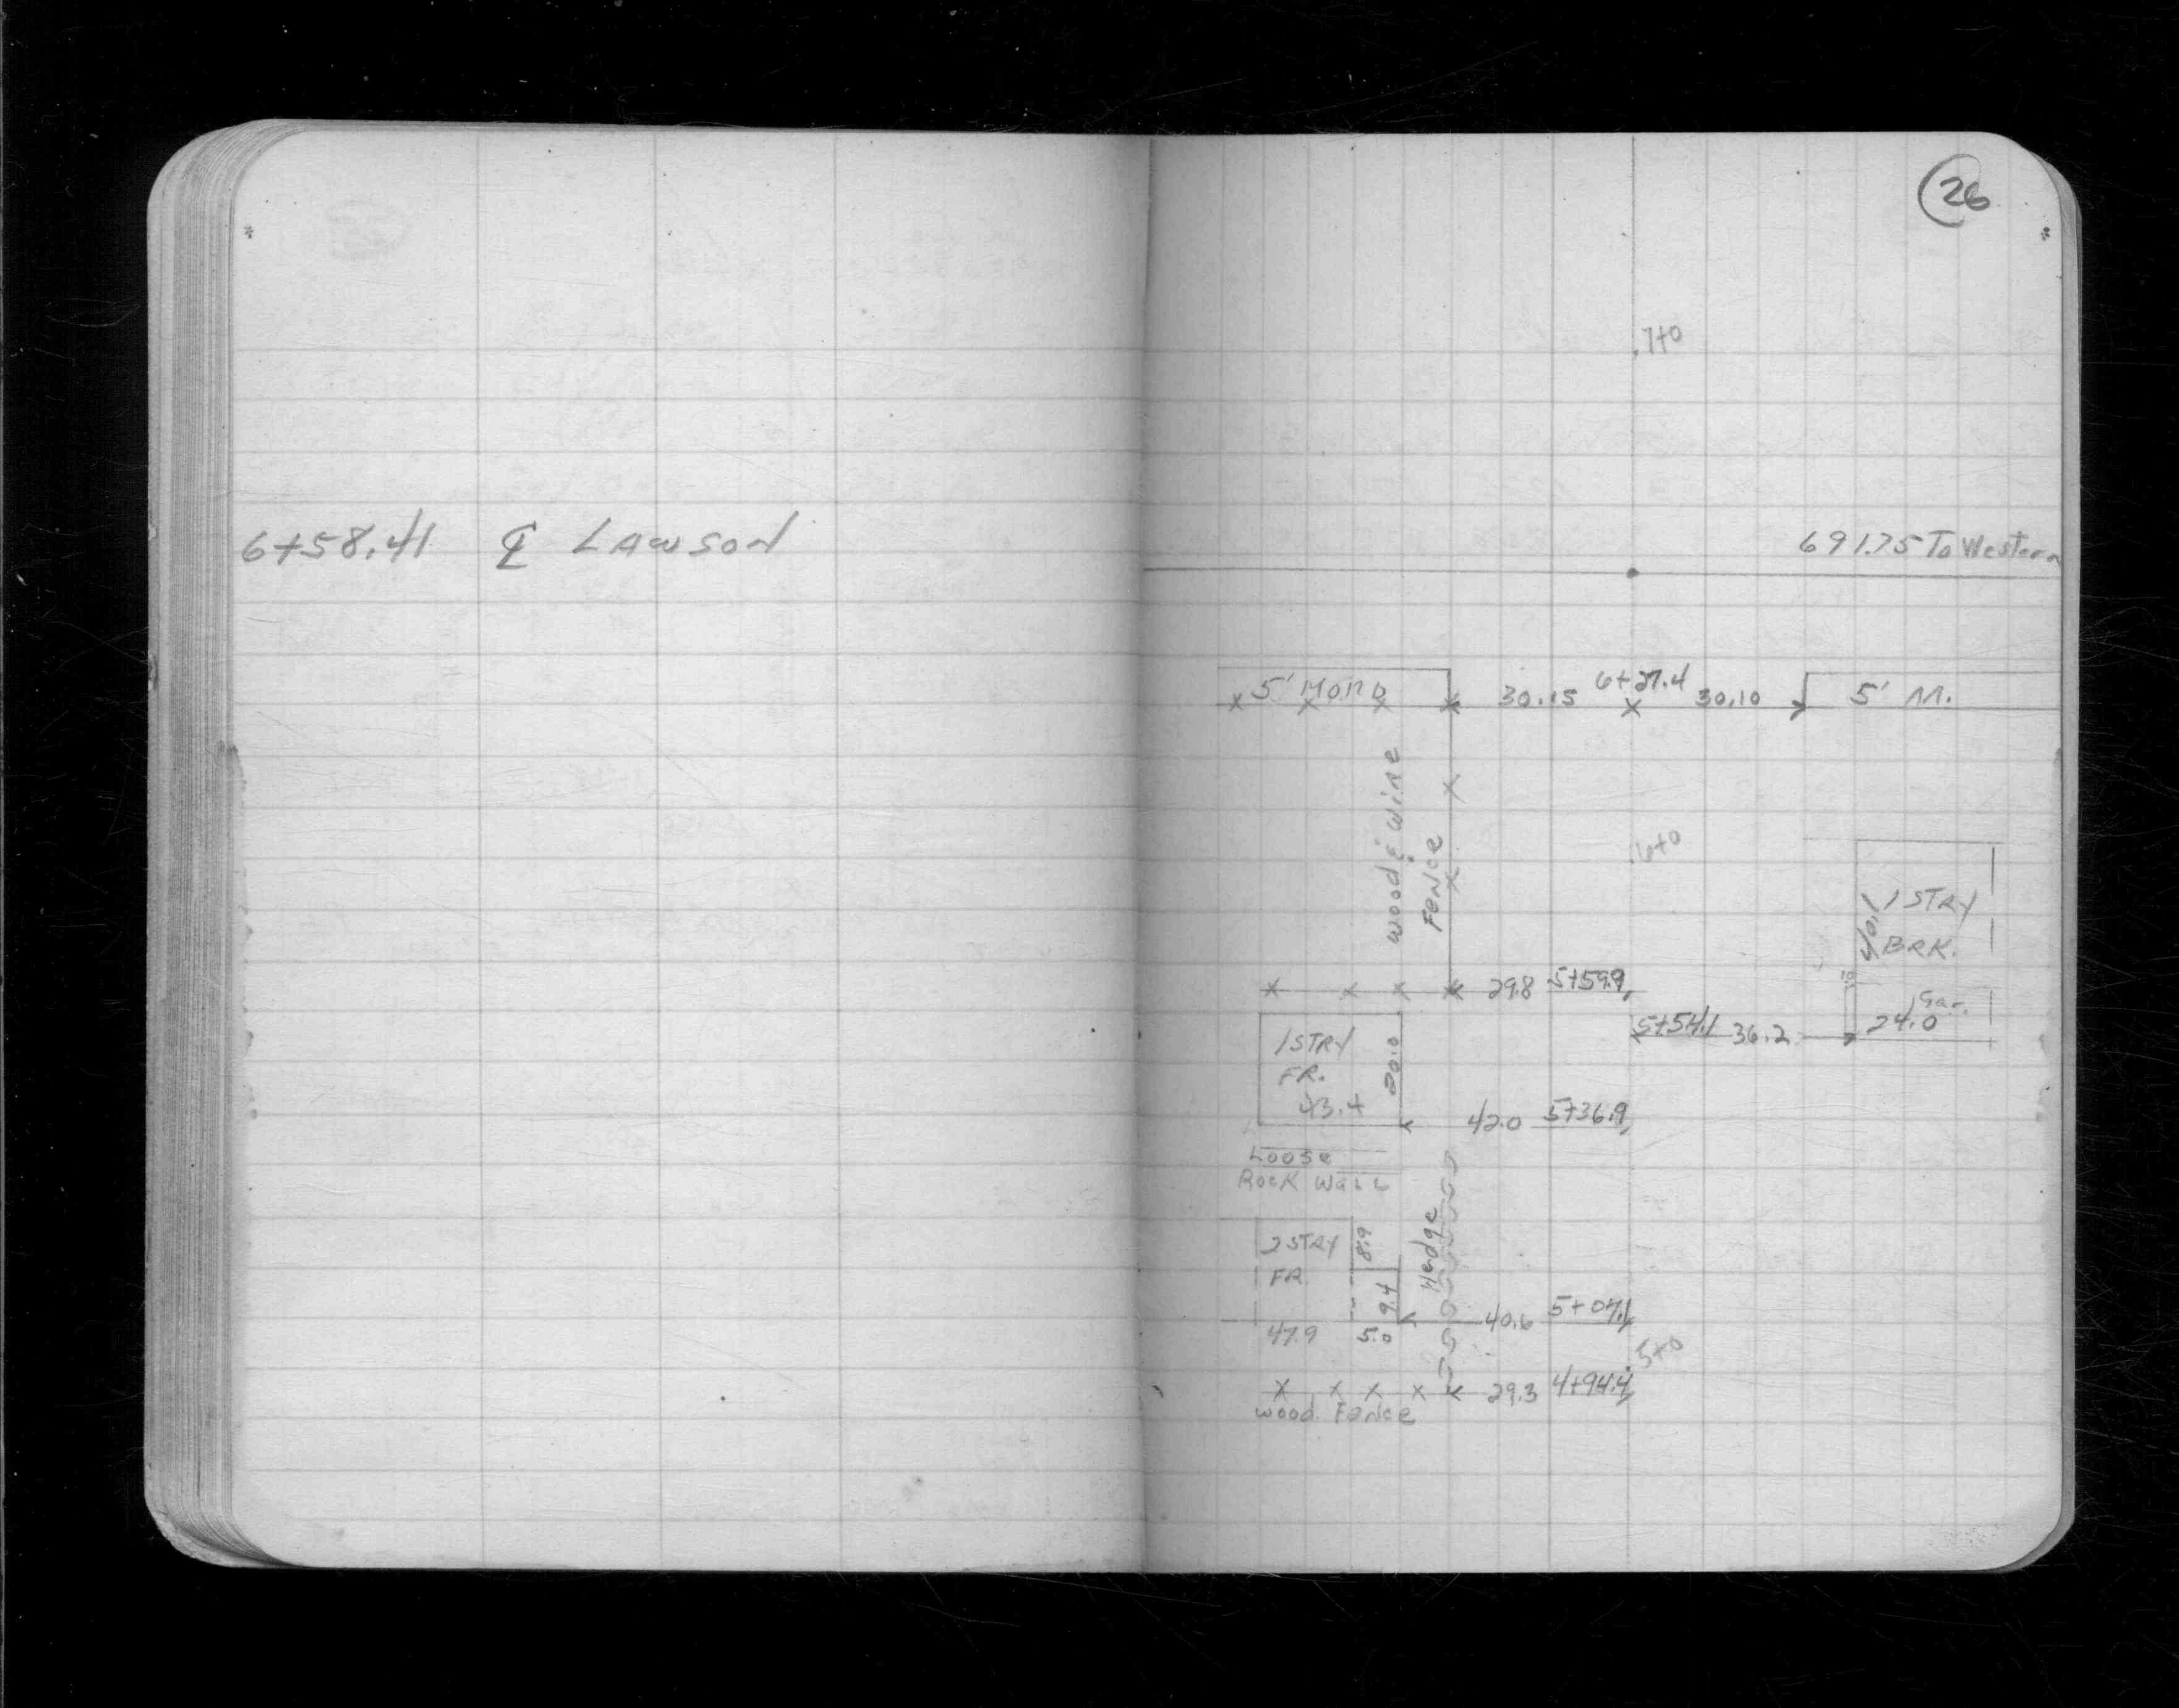 26
7+0
6+58.41 ℄ LAWSON
691.75 To Western
5' MONO 30.15 6+27.4 30.10 5' M.
Wood & Wire
Fence
6+0
40.1 1 STRY
BRK.
29.8 5+59.9
Gar.
5+54.1 36.2 24.0
1 STRY
FR. 20.0
43.4
42.0 5+36.9
Loose
Rock Wall
Hedge
2 STRY 8.9
FR. 9.4
40.6 5+07.1
47.9 5.0
5+0
29.3 4+94.4
Wood Fence